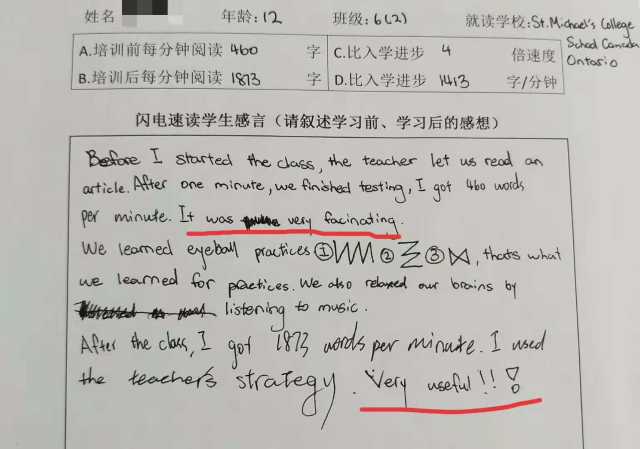 姓名 年龄:12 班级:6(2) 就读学校:St.Michael's College
School Canada
Ontario
A.培训前每分钟阅读 460 字 C.比入学进步 4 倍速度
B.培训后每分钟阅读 1873 字 D.比入学进步 1413 字/分钟
闪电速读学生感言（请叙述学习前、学习后的感想）
Before I started the class, the teacher let us read an
article. After one minute, we finished testing, I got 460 words
per minute. It was very facinating.
We learned eyeball practices ① ② ③ , thats what
we learned for practices. We also relaxed our brains by
listening to music.
After the class, I got 1873 words per minute. I used
the teacher's strategy. Very useful!!!